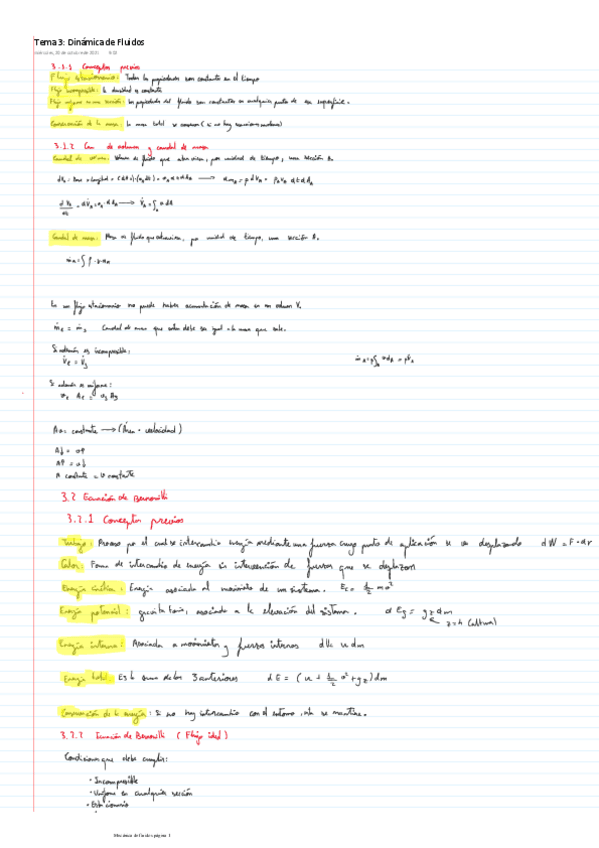 Tema 3: Dinámica de Fluidos
3.1.1 Conceptos previos
Flujo estacionario: Todas las propiedades son constante en el tiempo
Flujo incompresible: la densidad es constante
Flujo uniforme en una sección: las propiedades del fluido son constantes en cualquier punto de su superficie.
Conservación de la masa: la masa total se conserva (si no hay reacciones nucleares)
3.1.2 de volumen y caudal de masa
Caudal de volumen: Volumen de fluido que atraviesa, por unidad de tiempo, una sección A.
Caudal de masa: Masa de fluido que atraviesa, por unidad de tiempo, una sección A.
En un flujo estacionario no puede haber acumulación de masa en un volumen V.
ṁe = ṁs Caudal de masa que entra debe ser igual a la masa que sale.
Si además es incompresible:
V̇e = V̇s
Si además es uniforme:
ve Ae = vs As
Av = constante → (Área · velocidad)
A↓ = v↑
A↑ = v↓
A constante = v constante
3.2 Ecuación de Bernoulli
3.2.1 Conceptos previos
Trabajo: Proceso por el cual se intercambia energía mediante una fuerza cuyo punto de aplicación se va desplazando dW = F · dr
Calor: Forma de intercambio de energía sin intervención de fuerzas que se desplazan
Energía cinética: Energía asociada al movimiento de un sistema. Ec = 1/2 m v²
Energía potencial: gravitatoria, asociada a la elevación del sistema. dEg = gz dm
z = h (altura)
Energía interna: Asociada a movimientos y fuerzas internas dU = u dm
Energía total: Es la suma de las 3 anteriores dE = (u + 1/2 v² + gz) dm
Conservación de la energía: Si no hay intercambio con el entorno, se mantiene.
3.2.2 Ecuación de Bernoulli (Flujo ideal)
Condiciones que debe cumplir:
· Incompresible
· Uniforme en cualquier sección
· Estacionario
Mecánica de fluidos página 1